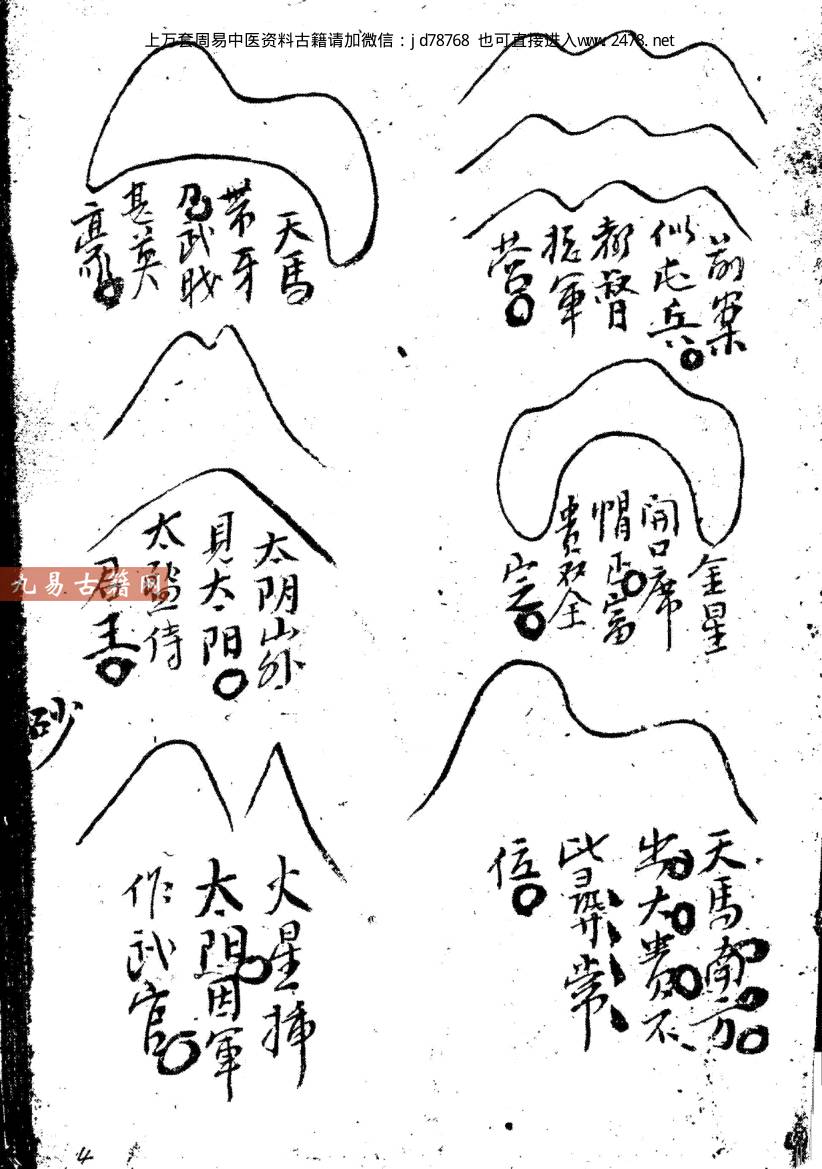 上万套周易中医资料古籍请加微信：jd78768 也可直接进入www.2478.net
前案
似屯兵
都督
總軍
营
金星
開口席
帽正富
貴双全
定
天馬南方
出大貴不
比尋常
信
天馬
带牙
乃武職
甚英
豪
太阴山外
見太阳
太監侍
君王
火星挿
太阴因軍
作武官
砂
九易古籍网
4